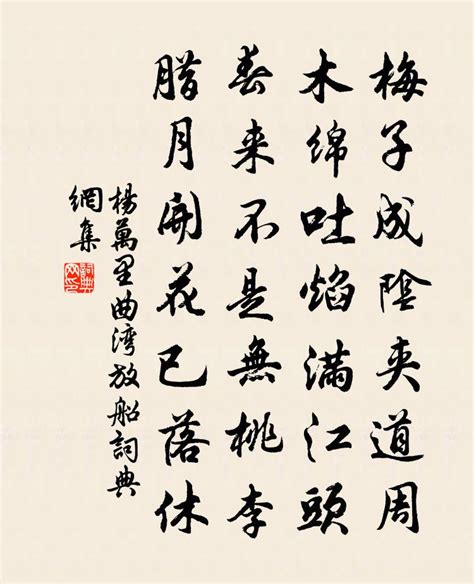 梅子成陰夹道周
木绵吐焰满江頭
春来不是無桃李
腊月開花已落休
楊萬里曲湾放船詞典
網集
詞典
网印